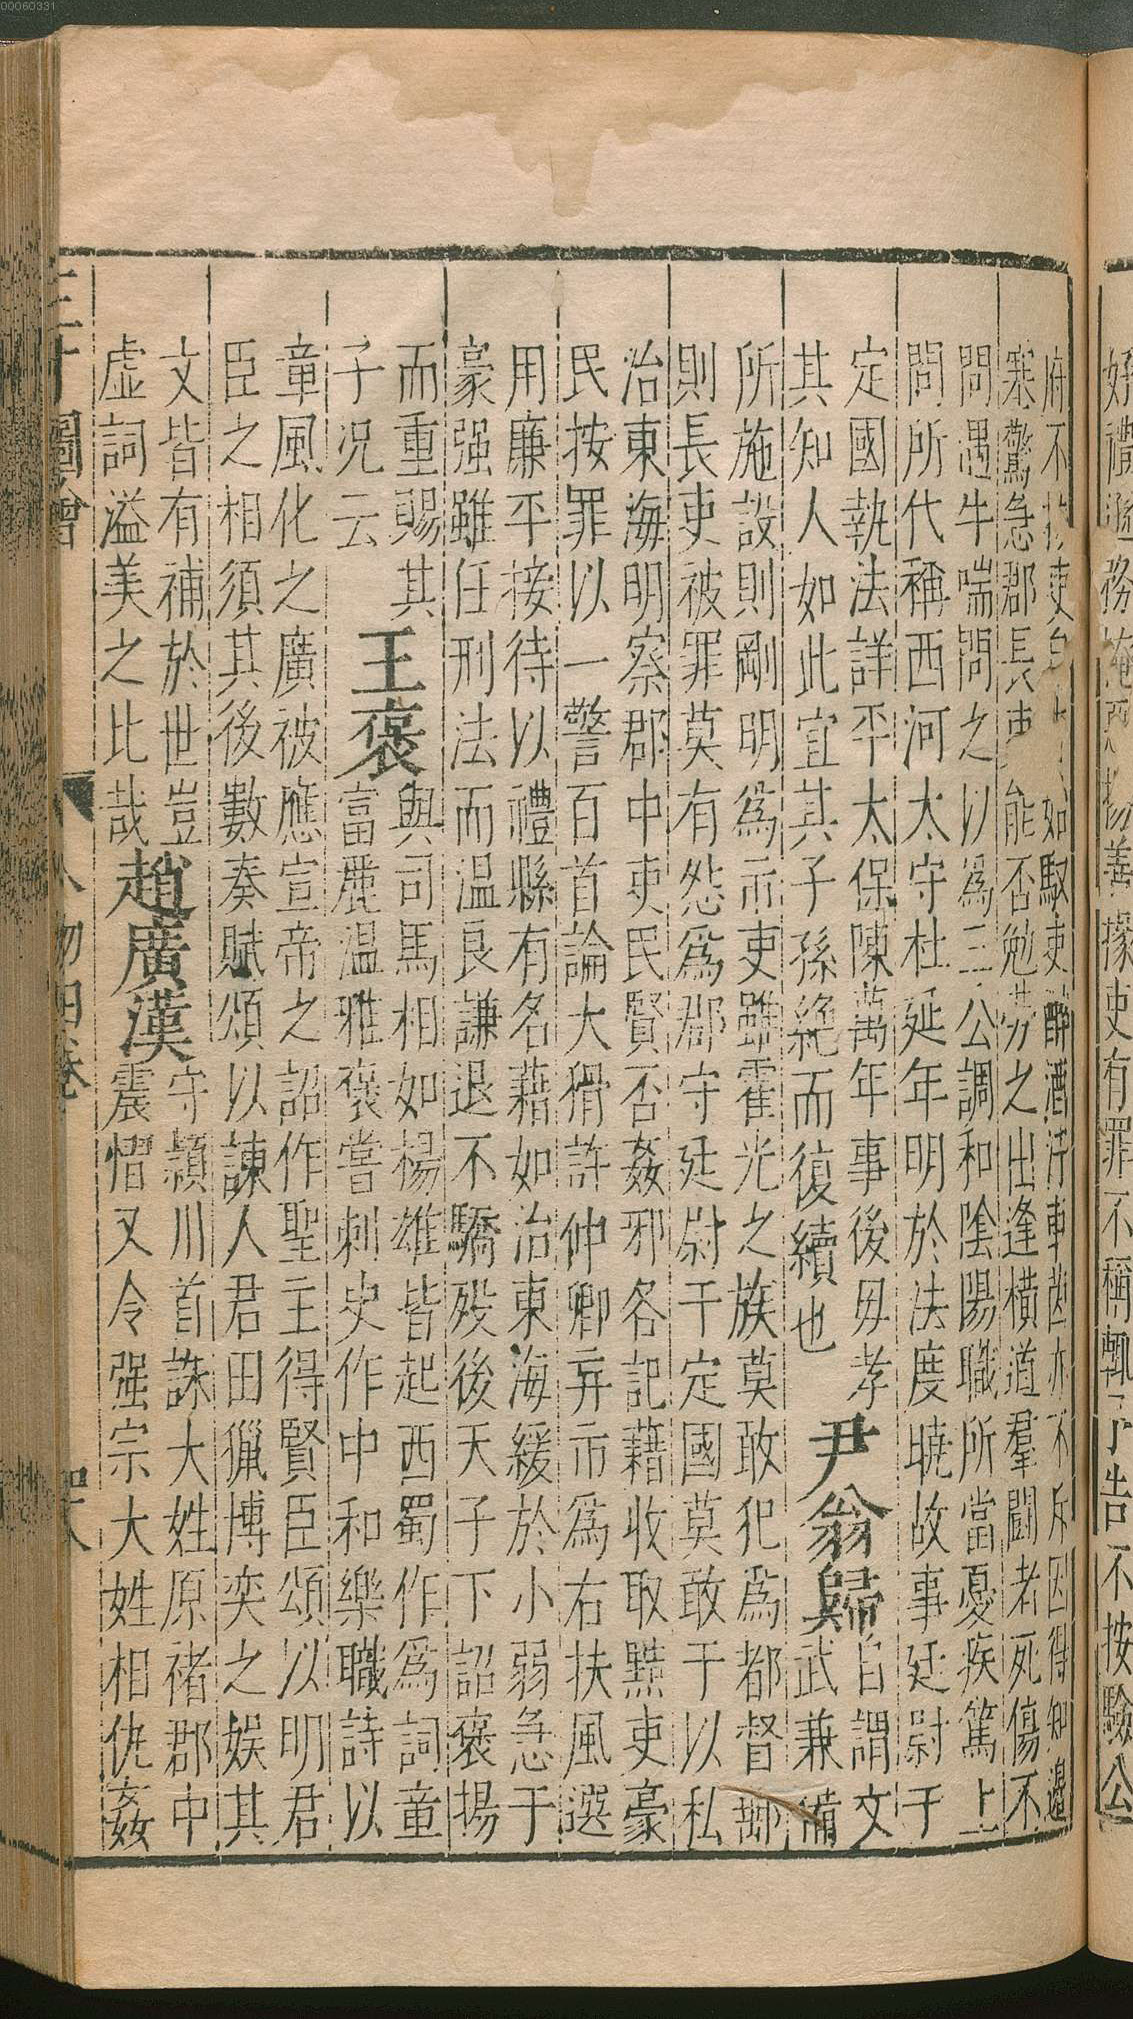 00060331
好禮遜務掩惡揚善掾吏有罪不稱輒予告不按驗公
府不按吏自如馭吏醉酒汚車茵亦不斥因得知邊
塞驚急郡長吏能否勉勞之出逢橫道羣鬬者死傷不
問遇牛喘問之以爲三公調和陰陽職所當憂疾篤上
問所代稱西河太守杜延年明於法度曉故事廷尉于
定國執法詳平太保陳萬年事後毋孝
其知人如此宜其子孫絶而復續也
尹翁歸
自謂文
武兼備
所施設則剛明爲市吏雖霍光之族莫敢犯爲都督郵
則長吏被罪莫有怨爲郡守廷尉于定國莫敢于以私
治東海明察郡中吏民賢否姦邪各記藉收取黠吏豪
民按罪以一警百首論大猾許仲卿弃市爲右扶風選
用廉平接待以禮縣有名藉如治東海緩於小弱急于
豪强雖任刑法而温良謙退不驕殁後天子下詔褒揚
而重賜其
子况云
王褒
與司馬相如楊雄皆起西蜀作爲詞童
富麗温雅褒嘗刺史作中和樂職詩以
章風化之廣被應宣帝之詔作聖主得賢臣頌以明君
臣之相須其後數奏賦頌以諫人君田獵博奕之娱其
文皆有補於世豈
虚詞溢美之比哉
趙廣漢
守潁川首誅大姓原褚郡中
震慴又令强宗大姓相仇姦
三才圖會 人物四卷 四十八